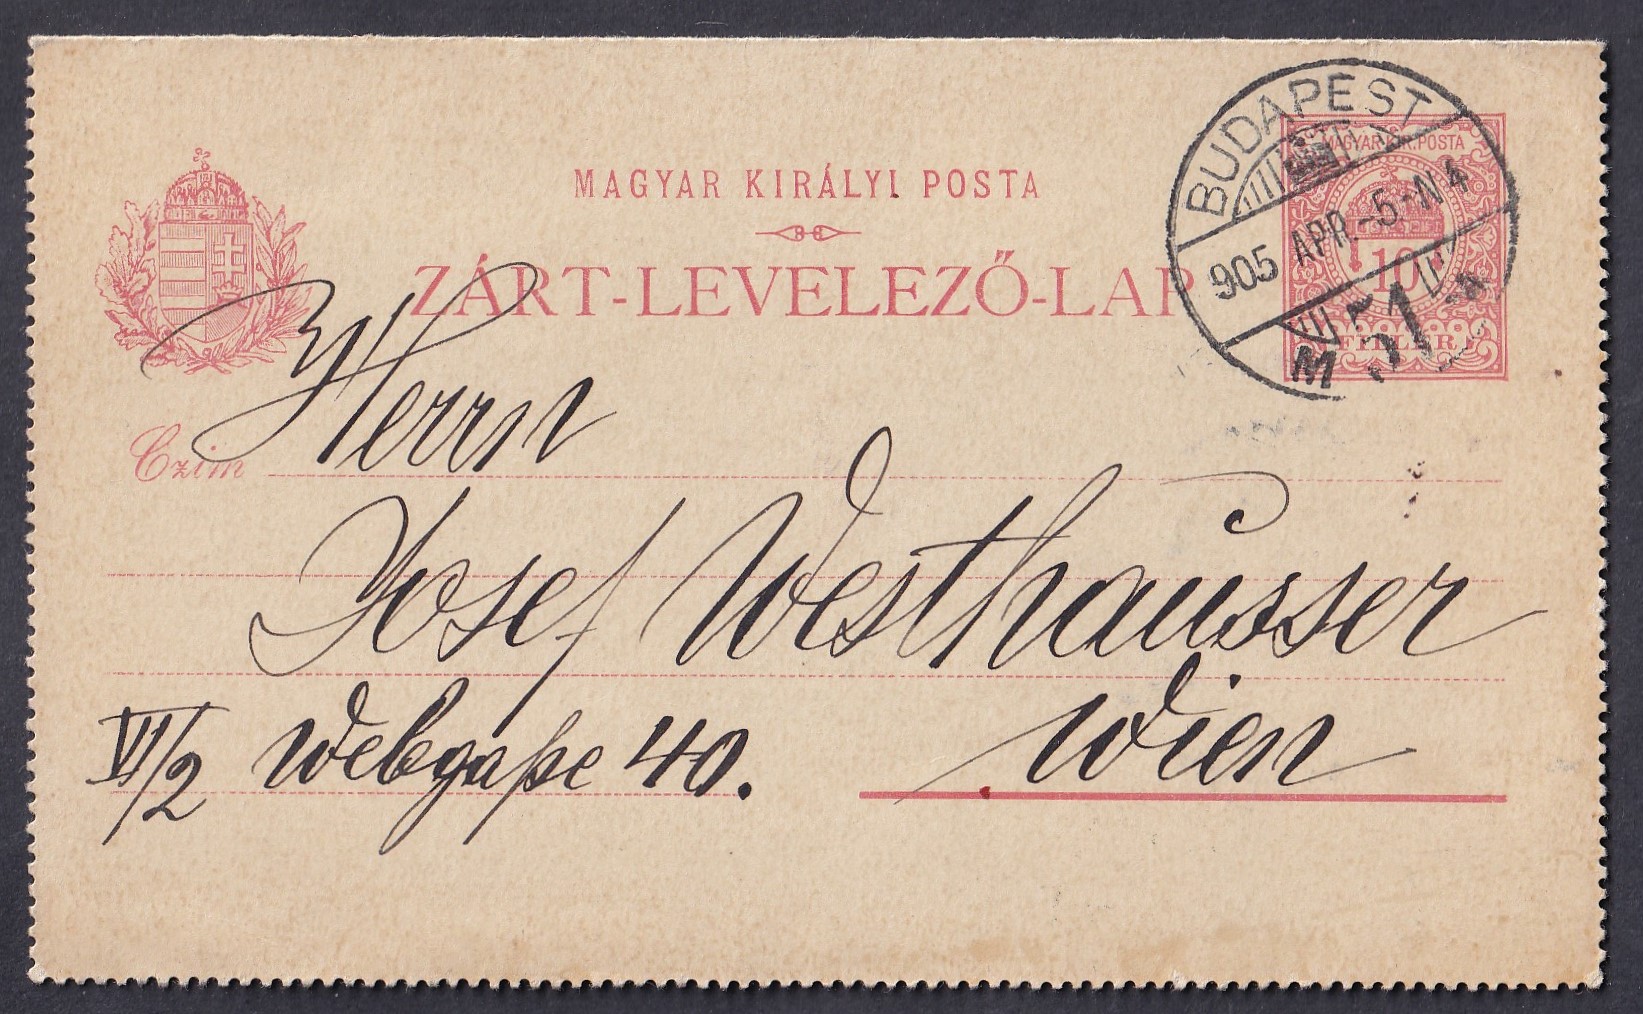 MAGYAR KIRÁLYI POSTA
ZÁRT-LEVELEZŐ-LAP
BUDAPEST
905 APR.-5-N4
M 51
MAGYAR KIR. POSTA
10
FILLÉR
Czim
Herrn
Josef Westhausser
Wien
VI/2 Webgasse 40.